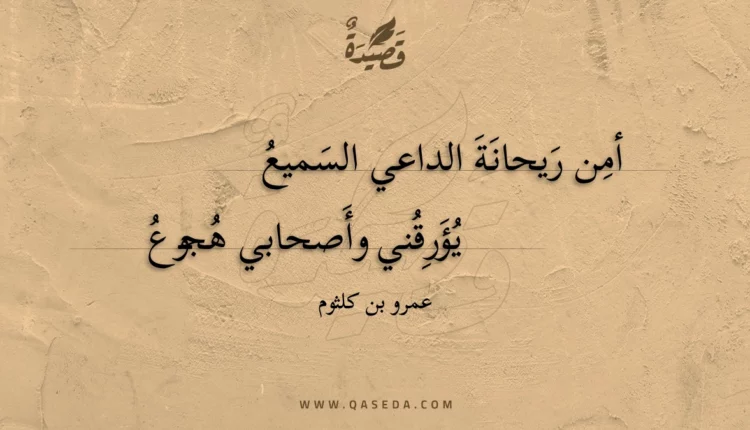 قَصِيْدَةٌ
أمِن رَيحانَةَ الداعي السَميعُ
يُؤَرِقُني وأَصحابي هُجوعُ
عمرو بن كلثوم
WWW.QASEDA.COM